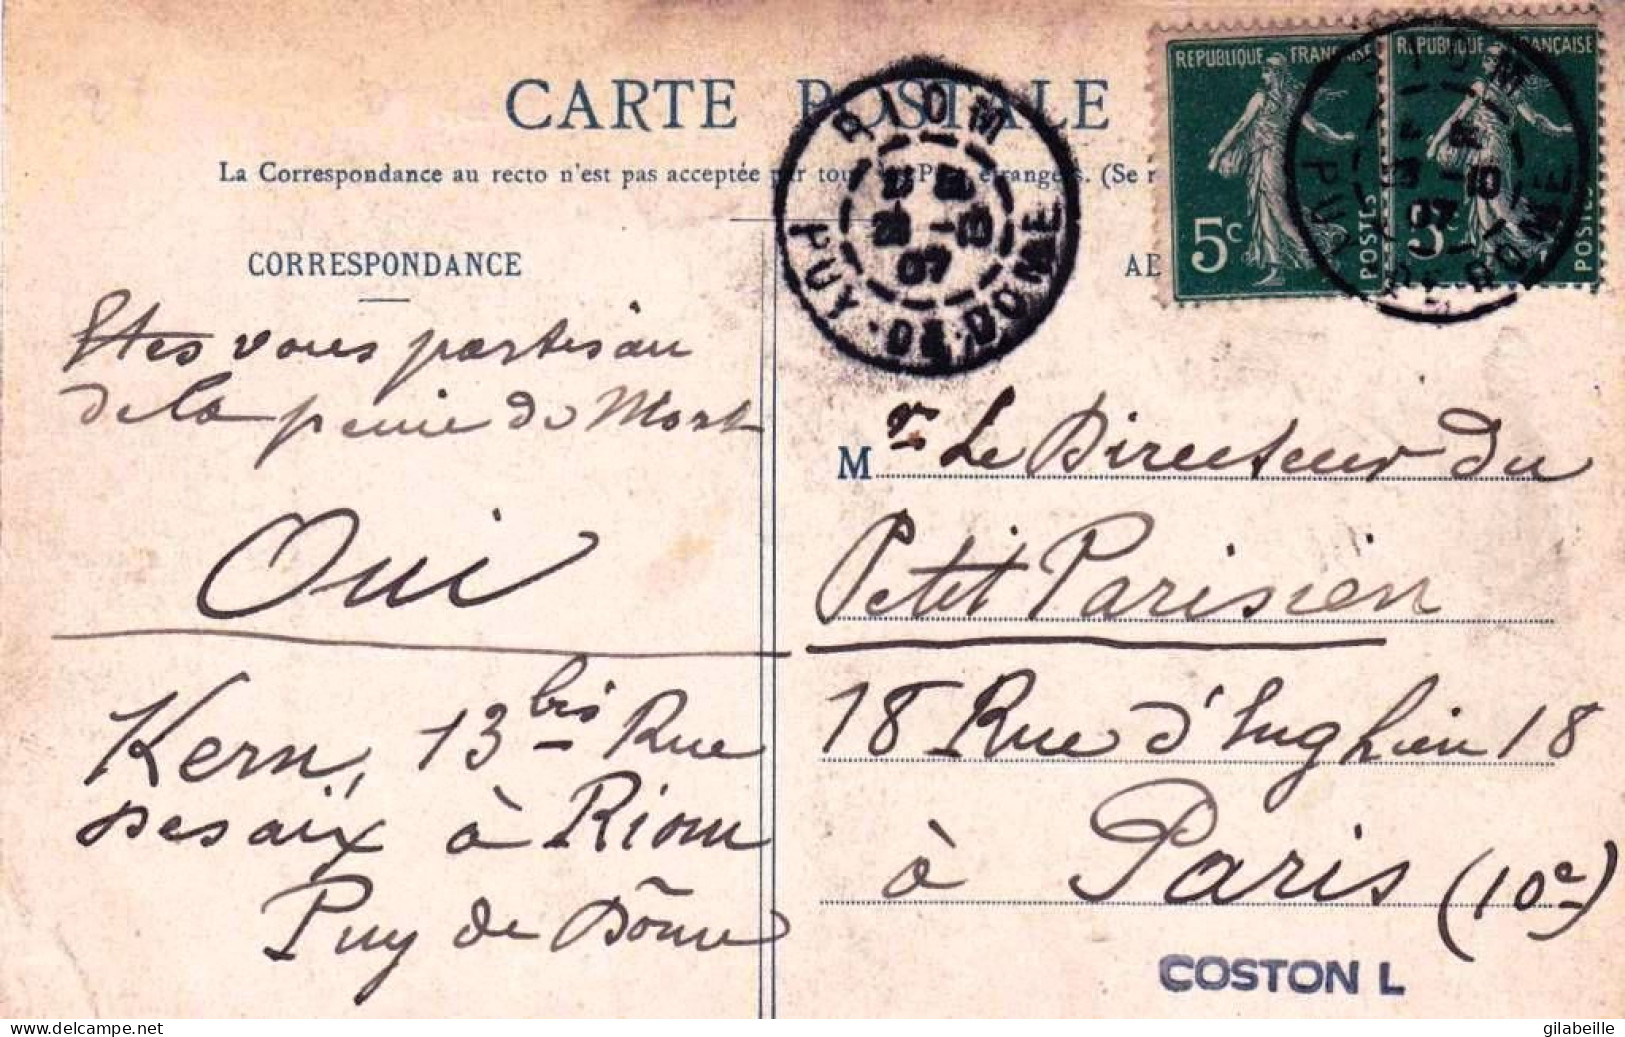 CARTE POSTALE
La Correspondance au recto n'est pas acceptée par tous Pays étrangers. (Se r
CORRESPONDANCE
Etes vous partisan
de la peine de Mort
Oui
Kern, 13 bis Rue
Desaix à Riom
Puy de Dôme
RIOM
07
PUY-DE-DOME
REPUBLIQUE FRANÇAISE
5c
POSTES
REPUBLIQUE FRANÇAISE
POSTES
RIOM
10
07
PUY-DE-DOME
Mr Le Directeur du
Petit Parisien
18 Rue d'Enghien 18
à Paris (10e)
COSTON L
www.delcampe.net
gilabeille